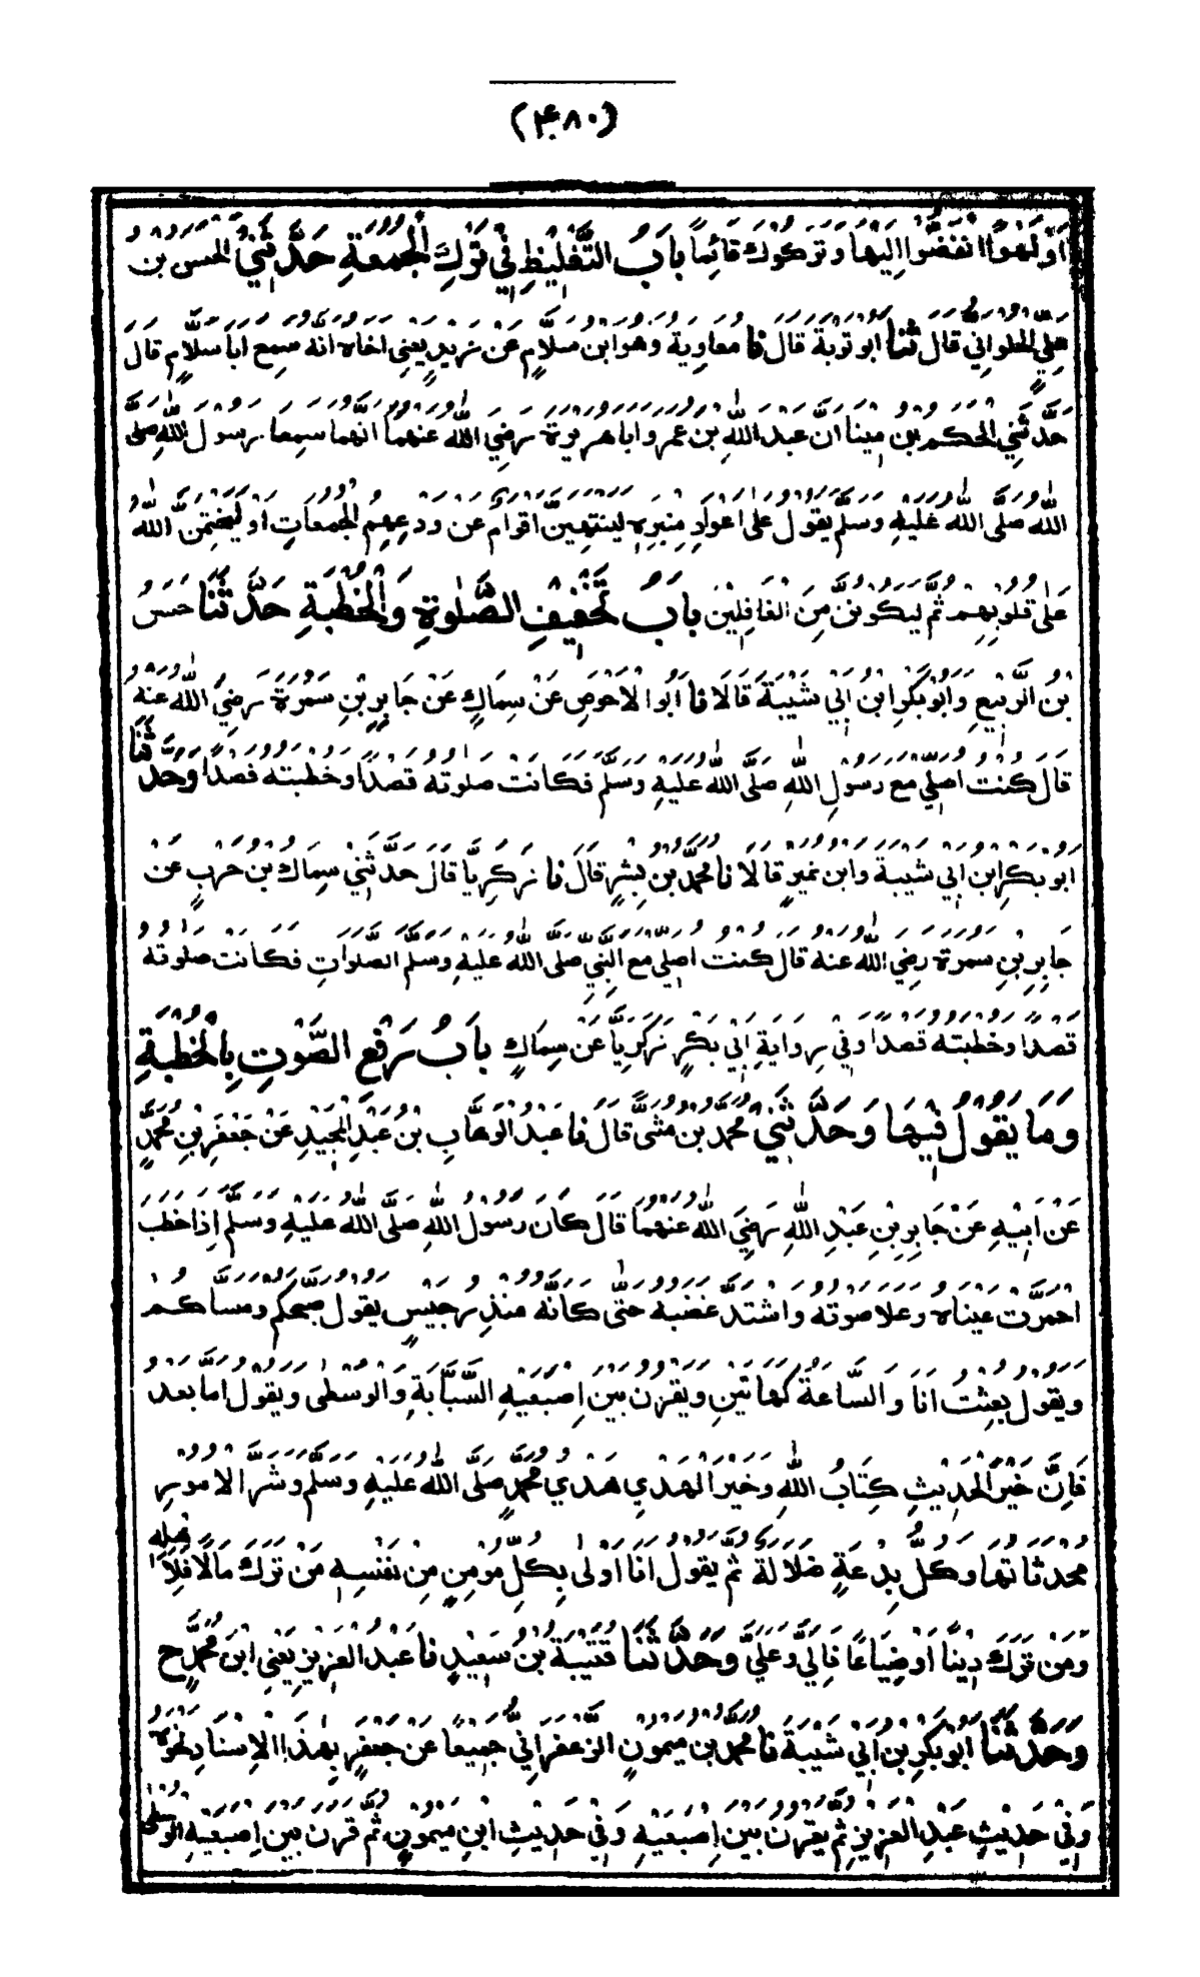 (۴۸۰)
اَوْلَهْوًا انْفَضُّوْا اِلَيْهَا وَتَرَكُوْكَ قَائِمًا بَابُ التَّغْلِيْظِ فِيْ تَرْكِ الْجُمُعَةِ حَدَّثَنِيْ الْحَسَنُ بْنُ
عَلِيّ الْحُلْوَانِيُّ قَالَ ثَنَا اَبُوْ تَوْبَةَ قَالَ نَا مُعَاوِيَةُ وَهُوَ ابْنُ سَلَّامٍ عَنْ زَيْدٍ يَعْنِي اَخَاهُ اَنَّهُ سَمِعَ اَبَا سَلَّامٍ قَالَ
حَدَّثَنِي الْحَكَمُ بْنُ مِيْنَا اَنَّ عَبْدَ اللّٰهِ بْنَ عُمَرَ وَاَبَا هُرَيْرَةَ رَضِيَ اللّٰهُ عَنْهُمَا اَنَّهُمَا سَمِعَا رَسُوْلَ اللّٰهِ صَلَّى
اللّٰهُ صَلَّى اللّٰهُ عَلَيْهِ وَسَلَّمَ يَقُوْلُ عَلٰى اَعْوَادِ مِنْبَرِهٖ لَيَنْتَهِيَنَّ اَقْوَامٌ عَنْ وَدْعِهِمُ الْجُمُعَاتِ اَوْ لَيَخْتِمَنَّ اللّٰهُ
عَلٰى قُلُوْبِهِمْ ثُمَّ لَيَكُوْنُنَّ مِنَ الْغَافِلِيْنَ بَابُ تَخْفِيْفِ الصَّلٰوةِ وَالْخُطْبَةِ حَدَّثَنَا حَسَنُ
بْنُ الرَّبِيْعِ وَاَبُوْبَكْرِ ابْنُ اَبِيْ شَيْبَةَ قَالَا نَا اَبُو الْاَحْوَصِ عَنْ سِمَاكٍ عَنْ جَابِرِ بْنِ سَمُرَةَ رَضِيَ اللّٰهُ عَنْهُ
قَالَ كُنْتُ اُصَلِّي مَعَ رَسُوْلِ اللّٰهِ صَلَّى اللّٰهُ عَلَيْهِ وَسَلَّمَ فَكَانَتْ صَلٰوتُهُ قَصْدًا وَخُطْبَتُهُ قَصْدًا وَحَدَّثَنَا
اَبُوْ بَكْرِ ابْنُ اَبِيْ شَيْبَةَ وَابْنُ نُمَيْرٍ قَالَا نَا مُحَمَّدُ بْنُ بِشْرٍ قَالَ نَا زَكَرِيَّا قَالَ حَدَّثَنِيْ سِمَاكُ بْنُ حَرْبٍ عَنْ
جَابِرِ بْنِ سَمُرَةَ رَضِيَ اللّٰهُ عَنْهُ قَالَ كُنْتُ اُصَلِّي مَعَ النَّبِيِّ صَلَّى اللّٰهُ عَلَيْهِ وَسَلَّمَ الصَّلَوَاتِ فَكَانَتْ صَلٰوتُهُ
قَصْدًا وَخُطْبَتُهُ قَصْدًا وَفِيْ رِوَايَةِ اَبِيْ بَكْرٍ زَكَرِيَّا عَنْ سِمَاكٍ بَابُ رَفْعِ الصَّوْتِ بِالْخُطْبَةِ
وَمَا يَقُوْلُ فِيْهَا وَحَدَّثَنِيْ مُحَمَّدُ بْنُ مُثَنَّى قَالَ نَا عَبْدُ الْوَهَّابِ بْنُ عَبْدِ الْمَجِيْدِ عَنْ جَعْفَرِ بْنِ مُحَمَّدٍ
عَنْ اَبِيْهِ عَنْ جَابِرِ بْنِ عَبْدِ اللّٰهِ رَضِيَ اللّٰهُ عَنْهُمَا قَالَ كَانَ رَسُوْلُ اللّٰهِ صَلَّى اللّٰهُ عَلَيْهِ وَسَلَّمَ اِذَا خَطَبَ
احْمَرَّتْ عَيْنَاهُ وَعَلَا صَوْتُهُ وَاشْتَدَّ غَضَبُهُ حَتّٰى كَاَنَّهُ مُنْذِرُ جَيْشٍ يَقُوْلُ صَبَّحَكُمْ وَمَسَّاكُمْ
وَيَقُوْلُ بُعِثْتُ اَنَا وَالسَّاعَةُ كَهَاتَيْنِ وَيَقْرُنُ بَيْنَ اِصْبَعَيْهِ السَّبَّابَةِ وَالْوُسْطٰى وَيَقُوْلُ اَمَّا بَعْدُ
فَاِنَّ خَيْرَ الْحَدِيْثِ كِتَابُ اللّٰهِ وَخَيْرُ الْهَدْيِ هَدْيُ مُحَمَّدٍ صَلَّى اللّٰهُ عَلَيْهِ وَسَلَّمَ وَشَرُّ الْاُمُوْرِ
مُحْدَثَاتُهَا وَكُلُّ بِدْعَةٍ ضَلَالَةٌ ثُمَّ يَقُوْلُ اَنَا اَوْلٰى بِكُلِّ مُؤْمِنٍ مِنْ نَفْسِهٖ مَنْ تَرَكَ مَالًا فَلِاَهْلِهٖ
وَمَنْ تَرَكَ دَيْنًا اَوْ ضَيَاعًا فَاِلَيَّ وَعَلَيَّ وَحَدَّثَنَا قُتَيْبَةُ بْنُ سَعِيْدٍ نَا عَبْدُ الْعَزِيْزِ يَعْنِي ابْنَ مُحَمَّدٍ ح
وَحَدَّثَنَا اَبُوْبَكْرِ بْنُ اَبِيْ شَيْبَةَ نَا مُحَمَّدُ بْنُ مَيْمُوْنٍ الزَّعْفَرَانِيُّ جَمِيْعًا عَنْ جَعْفَرٍ بِهٰذَا الْاِسْنَادِ نَحْوَهُ
وَفِيْ حَدِيْثِ عَبْدِ الْعَزِيْزِ ثُمَّ يَقْرُنُ بَيْنَ اِصْبَعَيْهِ وَفِيْ حَدِيْثِ ابْنِ مَيْمُوْنٍ ثُمَّ قَرَنَ بَيْنَ اِصْبَعَيْهِ الْوُسْطٰى